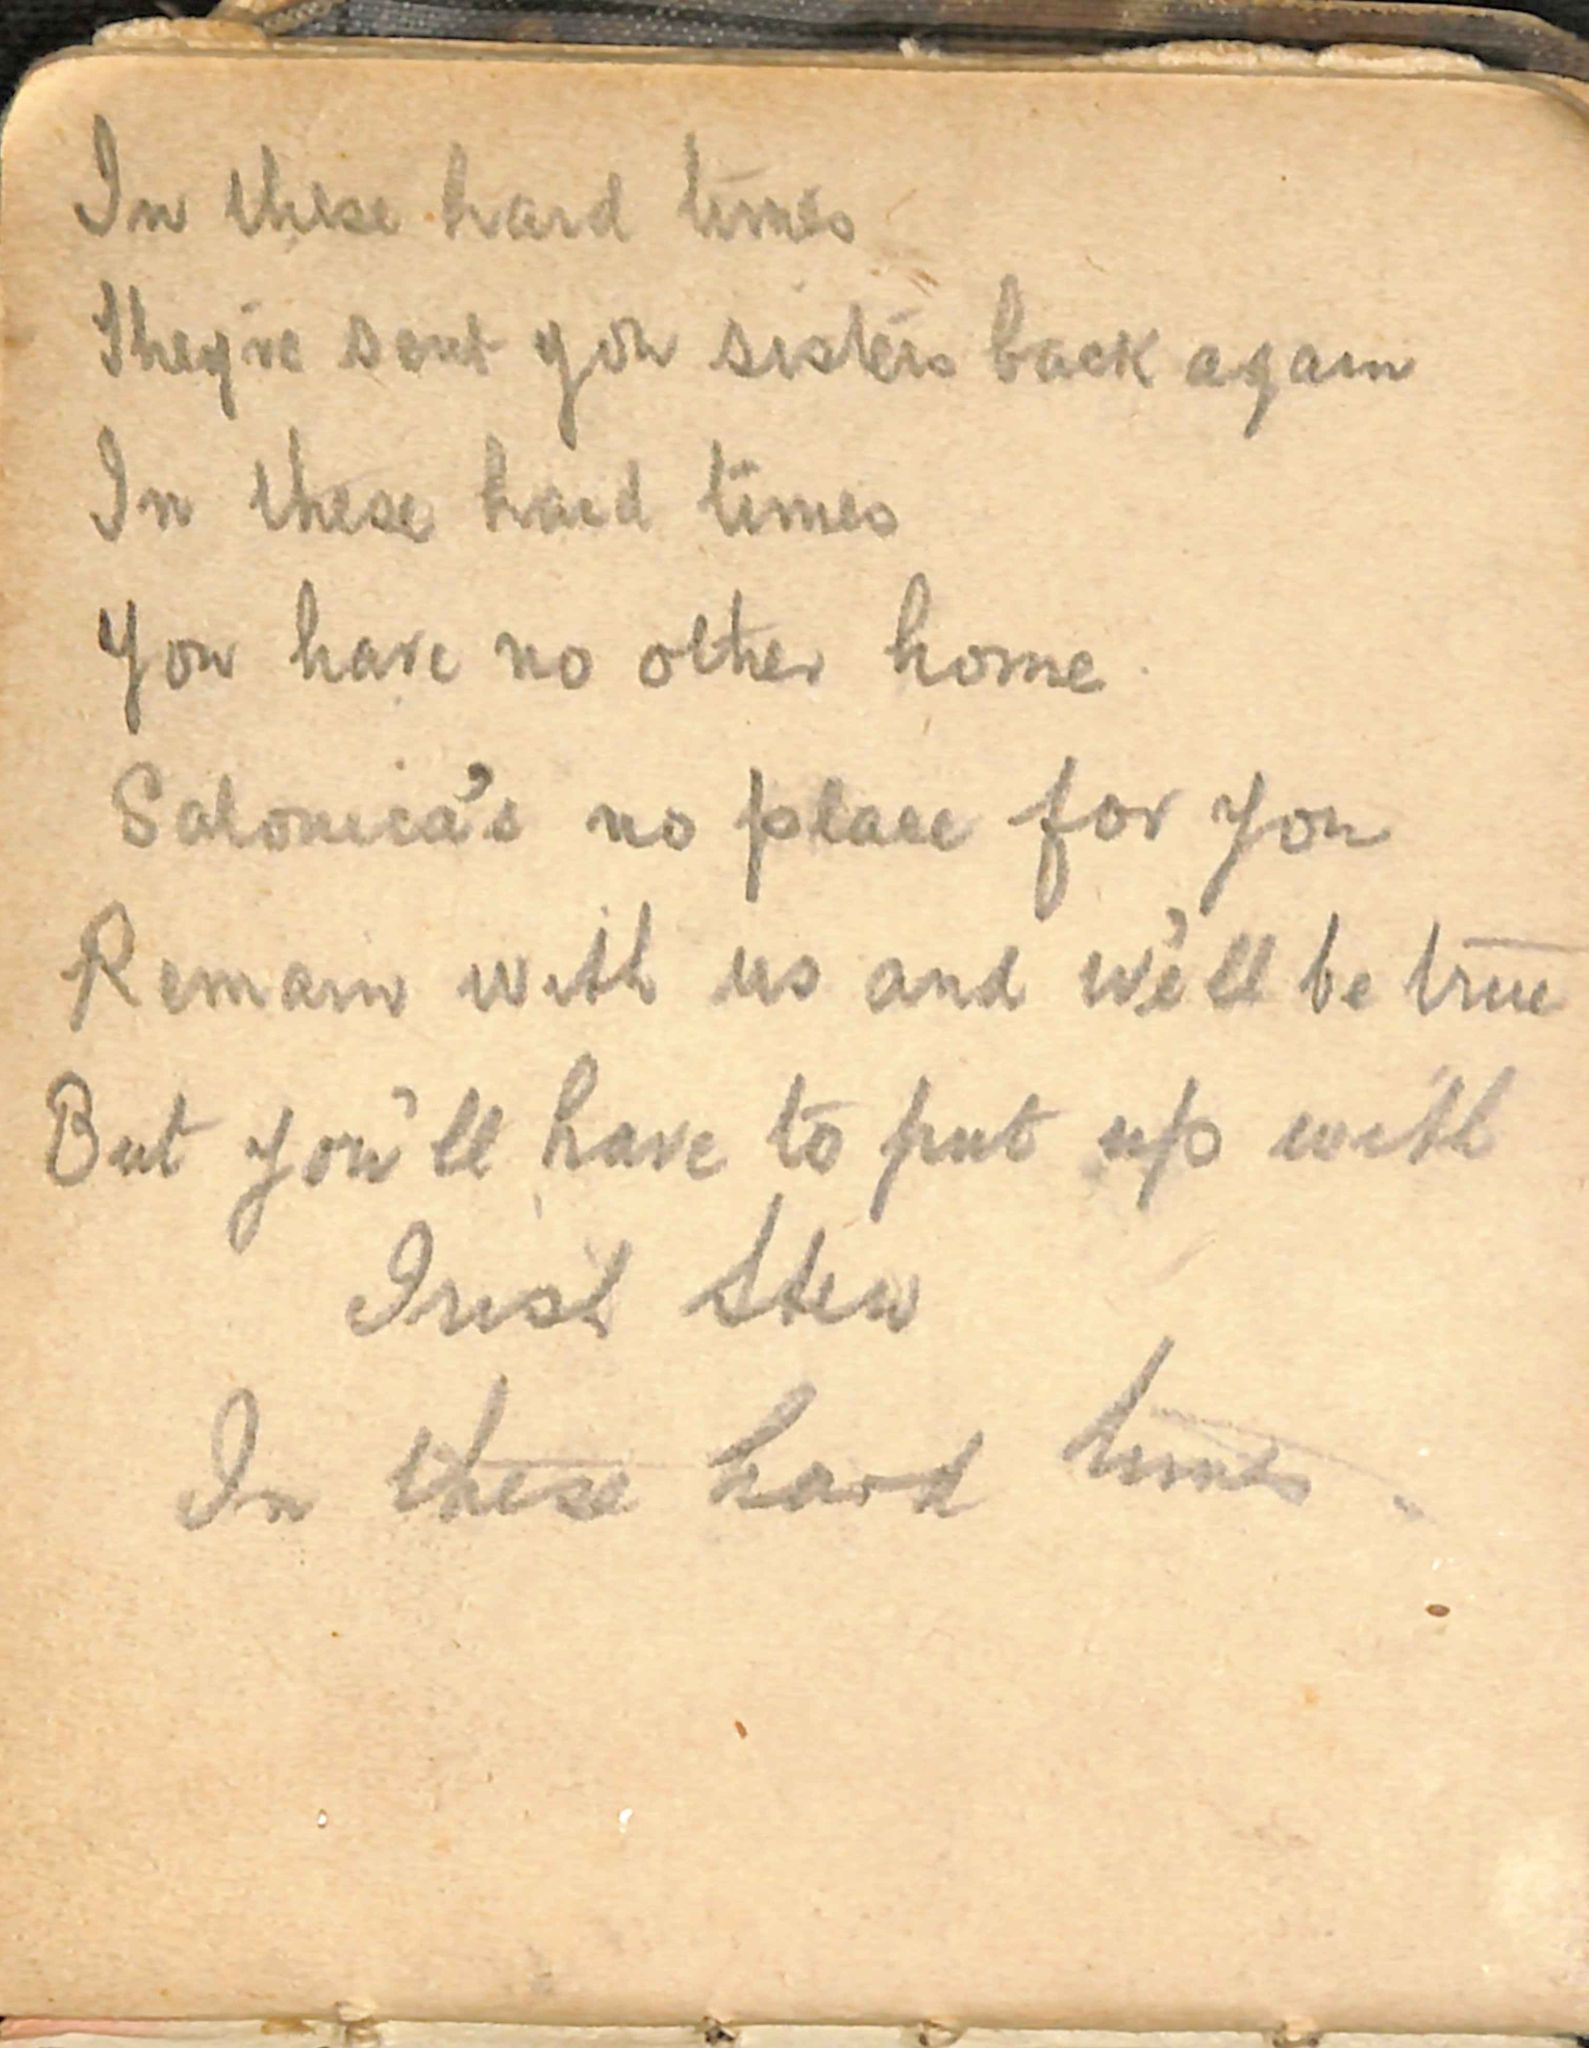 In these hard times
They've sent you sisters back again
In these hard times
You have no other home.
Salonica's no place for you
Remain with us and we'll be true
But you'll have to put up with
Irish Stew
In these hard times.